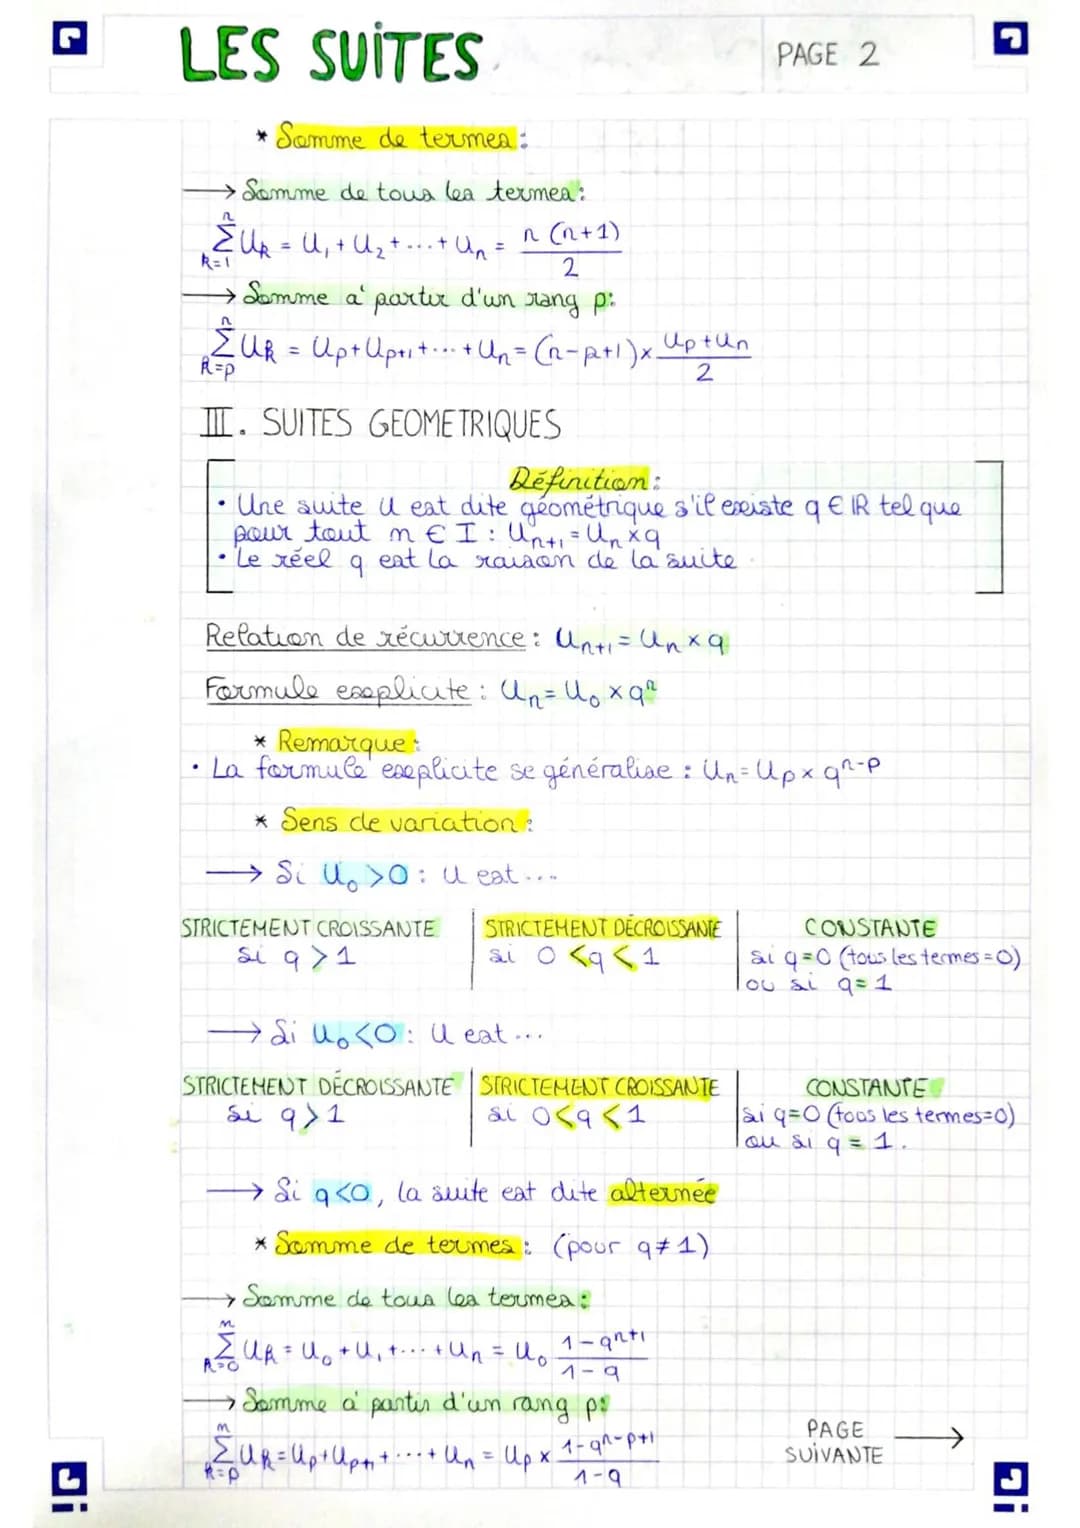 LES SUITES
PAGE 2
* Somme de termes :
→ Somme de tous les termes :
n
∑ Uk = U₁ + U₂ + ... + Un = n (n+1) / 2
k=1
→ Somme à partir d'un rang p :
n
∑ Uk = Up + Up+1 + ... + Un = (n-p+1) × (Up + Un) / 2
k=p
III. SUITES GEOMETRIQUES
Définition :
• Une suite U est dite géométrique s'il existe q ∈ IR tel que
pour tout n ∈ I : Un+1 = Un × q
• Le réel q est la raison de la suite.
Relation de récurrence : Un+1 = Un × q
Formule explicite : Un = U₀ × qⁿ
* Remarque :
• La formule explicite se généralise : Un = Up × qⁿ⁻ᵖ
* Sens de variation :
→ Si U₀ > 0 : U est ...
STRICTEMENT CROISSANTE | STRICTEMENT DÉCROISSANTE | CONSTANTE
si q > 1 | si 0 < q < 1 | si q = 0 (tous les termes = 0)
ou si q = 1
→ Si U₀ < 0 : U est ...
STRICTEMENT DÉCROISSANTE | STRICTEMENT CROISSANTE | CONSTANTE
si q > 1 | si 0 < q < 1 | si q = 0 (tous les termes = 0)
ou si q = 1.
→ Si q < 0, la suite est dite alternée
* Somme de termes : (pour q ≠ 1)
→ Somme de tous les termes :
n
∑ Uk = U₀ + U₁ + ... + Un = U₀ (1 - qⁿ⁺¹) / (1 - q)
k=0
→ Somme à partir d'un rang p :
n
∑ Uk = Up + Up+1 + ... + Un = Up × (1 - qⁿ⁻ᵖ⁺¹) / (1 - q)
k=p
PAGE
SUIVANTE →